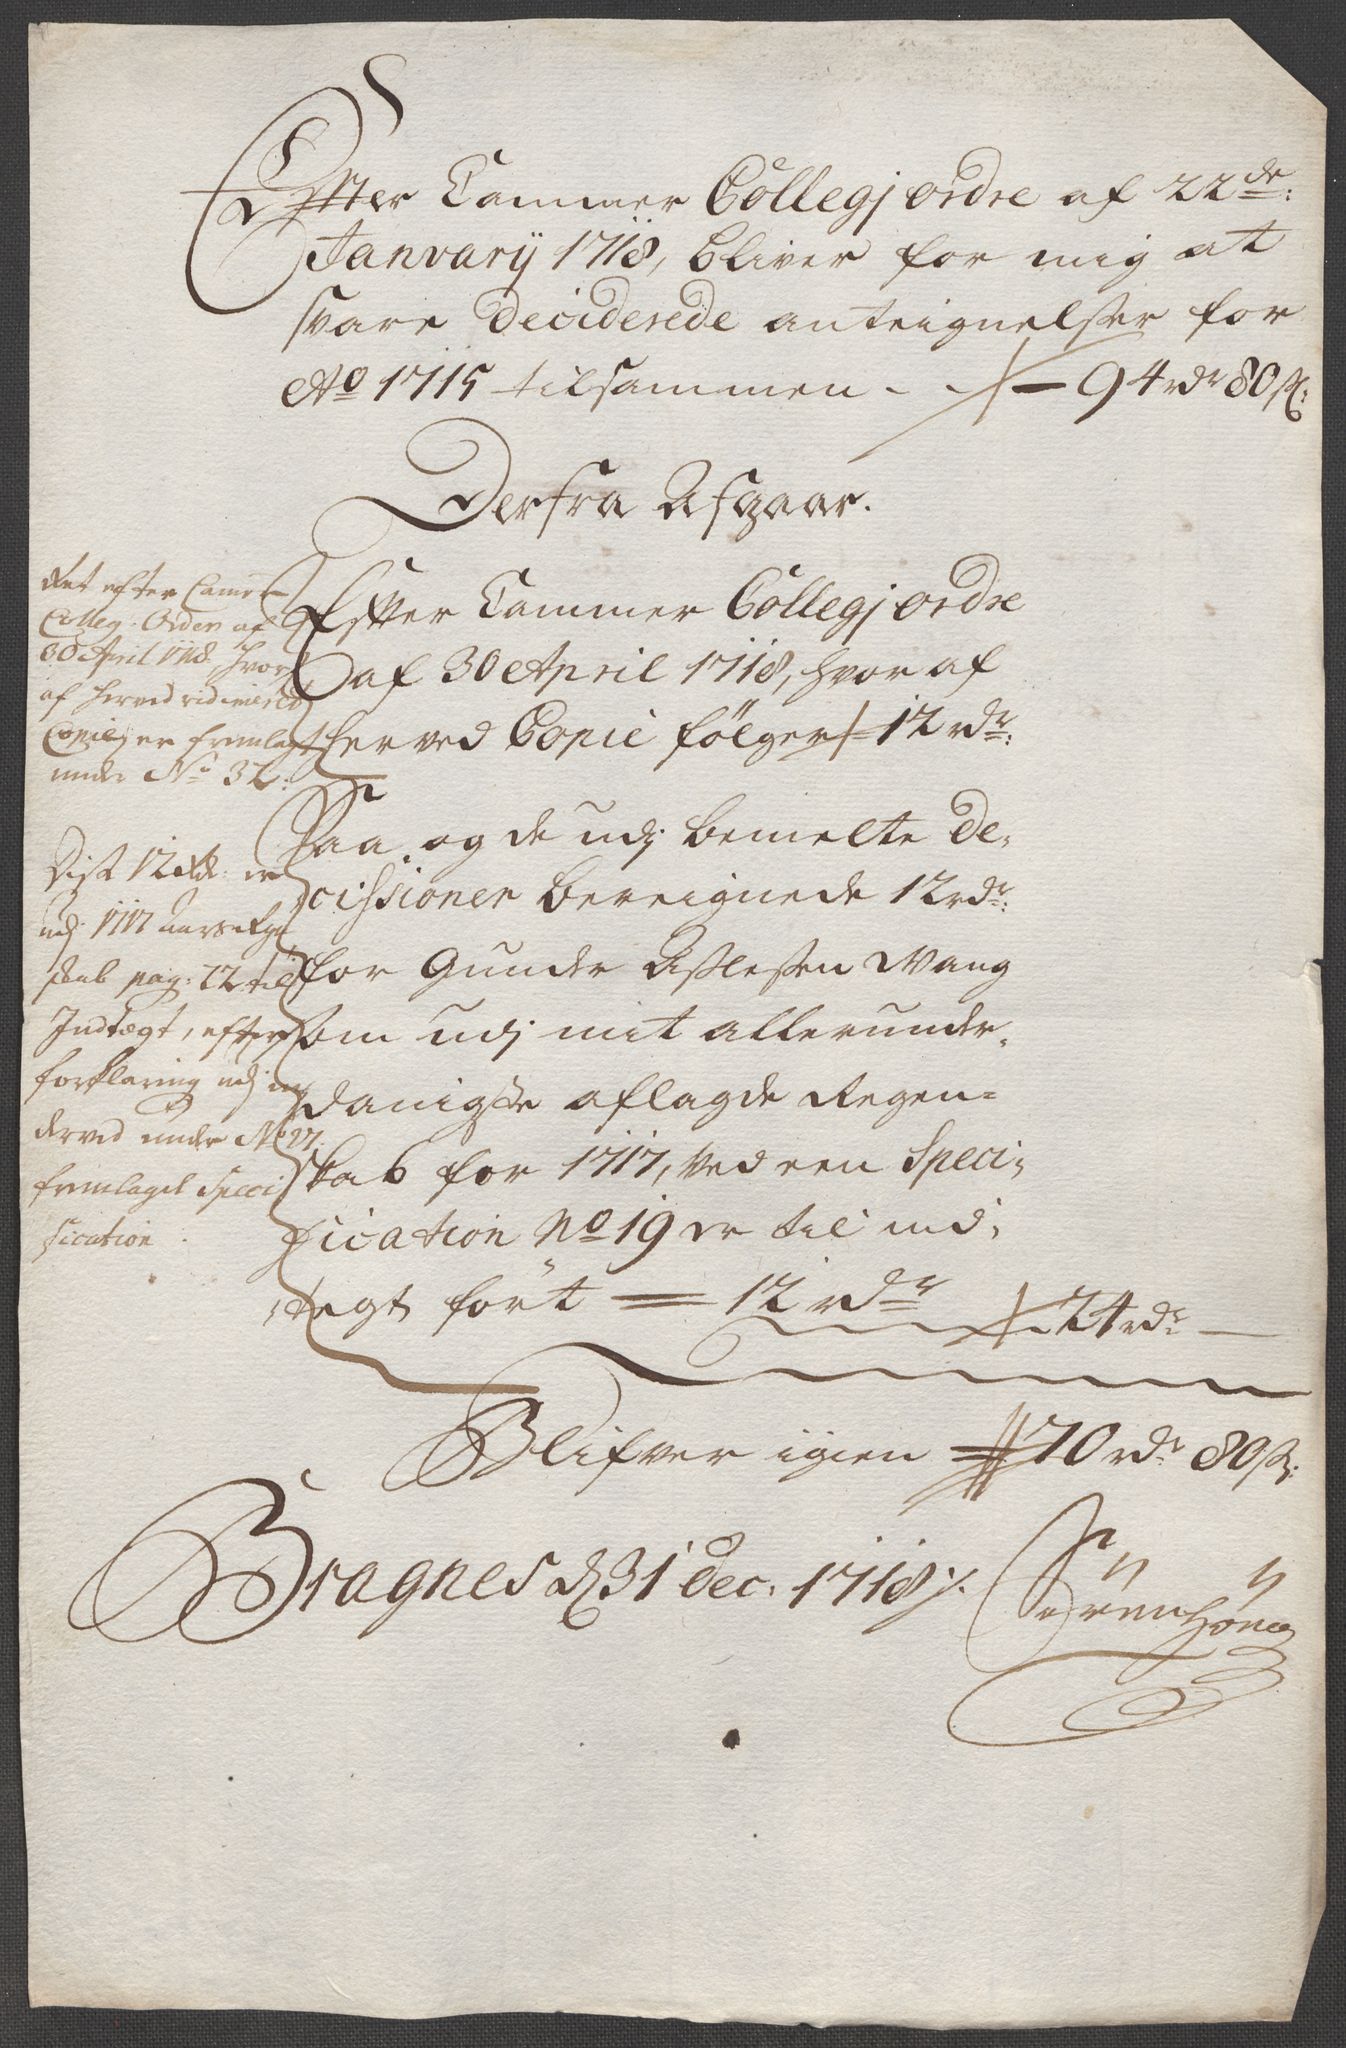 Efter Cammer Collegj ordre af 22de:
Janvarij 1718, bliver for mig at
svare Deciderede anteignelser for
Ao 1715 tilsammen - - 94 rdr 80 ß:
Derfra Afgaar.
Efter Cammer Collegj ordre
af 30 April 1718, hvor af
herved Copie følger 12 rdr:
Saa og de udj bemelte De-
cissioner bereignede 12 rdr:
for Gunder Aslesen Wang
som udj mit allerunder-
danigste aflagde Regen=
skab for 1717, ved een Speci-
fication No 19 er til ind-
tegt ført = 12 rdr 24 rdr
Blifver igien 70 rdr 80 ß:
Bragnes d 31 Dec. 1718
Sørren
Ret efter Camer
Colleg. Orden af
30 April 1718, hvor
af herved vidimered
Copie er fremlagt
under No 32.
Disse 12 rd: er
udj 1717 Aars Regn
skab pag: 22 til
Indtægt, efter
forklaring udj en
derved under No 27.
fremlaget Speci
fication